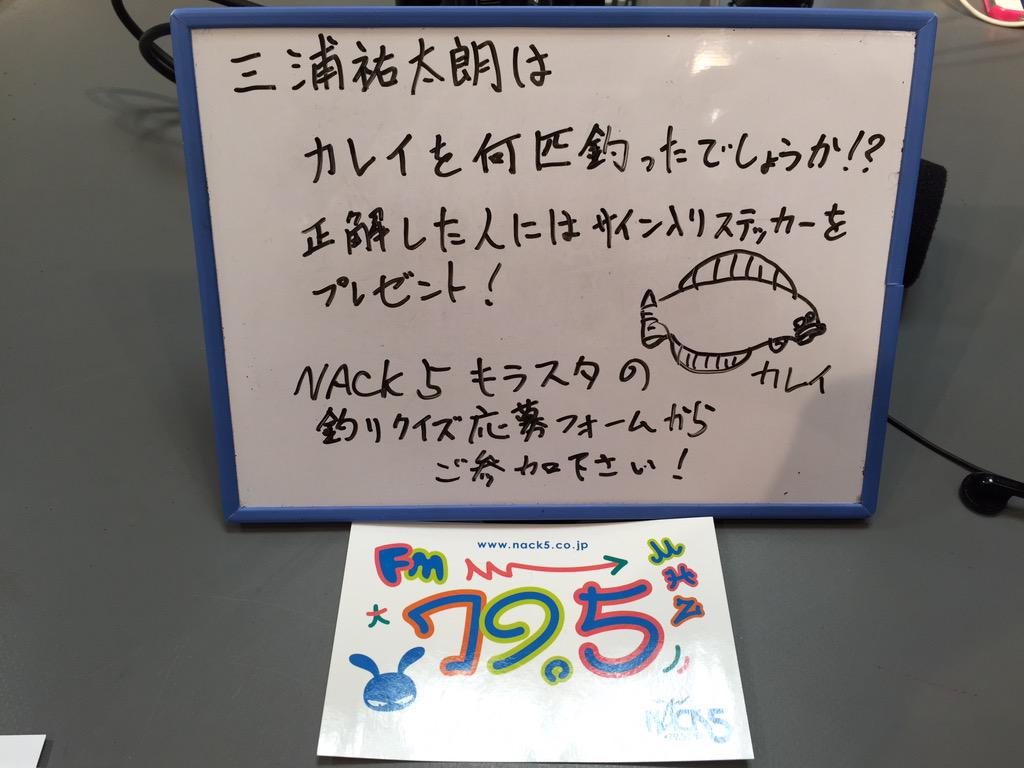 三浦祐太朗は
カレイを何匹釣ったでしょうか!?
正解した人にはサイン入りステッカーを
プレゼント!
カレイ
NACK5 キラスタの
釣りクイズ応募フォームから
ご参加下さい!
www.nack5.co.jp
FM
79.5
MHz
NACK5